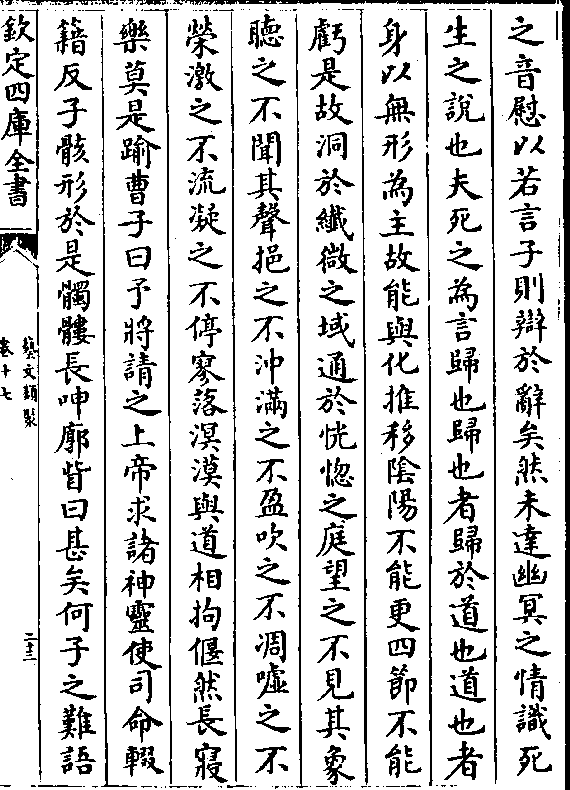 之音慰以若言子則辯於辭矣然未達幽冥之情識死
生之說也夫死之為言歸也歸也者歸於道也道也者
身以無形為主故能與化推移陰陽不能更四節不能
虧是故洞於纖微之域通於恍惚之庭望之不見其象
聽之不聞其聲挹之不沖滿之不盈吹之不凋噓之不
榮激之不流凝之不停寥落溟漠與道相拘偃然長寢
樂莫是踰曹子曰予將請之上帝求諸神靈使司命輟
籍反子骸形於是髑髏長呻廓眥曰甚矣何子之難語
欽定四庫全書
藝文類聚
卷十七
二十三